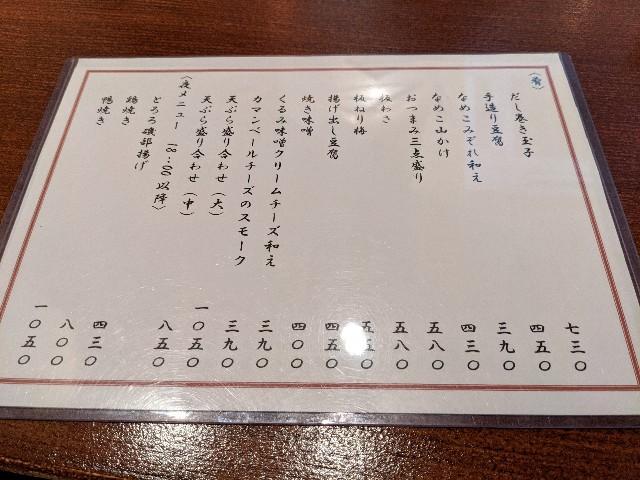 〈肴〉
だし巻き玉子 七三〇
手造り豆腐 四五〇
なめこみぞれ和え 三九〇
なめこ山かけ 四三〇
おつまみ三点盛り 五八〇
板わさ 五八〇
板ねり梅 五五〇
揚げ出し豆腐 四五〇
焼き味噌 四〇〇
くるみ味噌クリームチーズ和え 三九〇
カマンベールチーズのスモーク 三九〇
天ぷら盛り合わせ(大) 一〇五〇
天ぷら盛り合わせ(中) 八五〇
〈夜メニュー 18:00以降〉
とろろ磯部揚げ 四三〇
鶏焼き 八〇〇
鴨焼き 一〇五〇